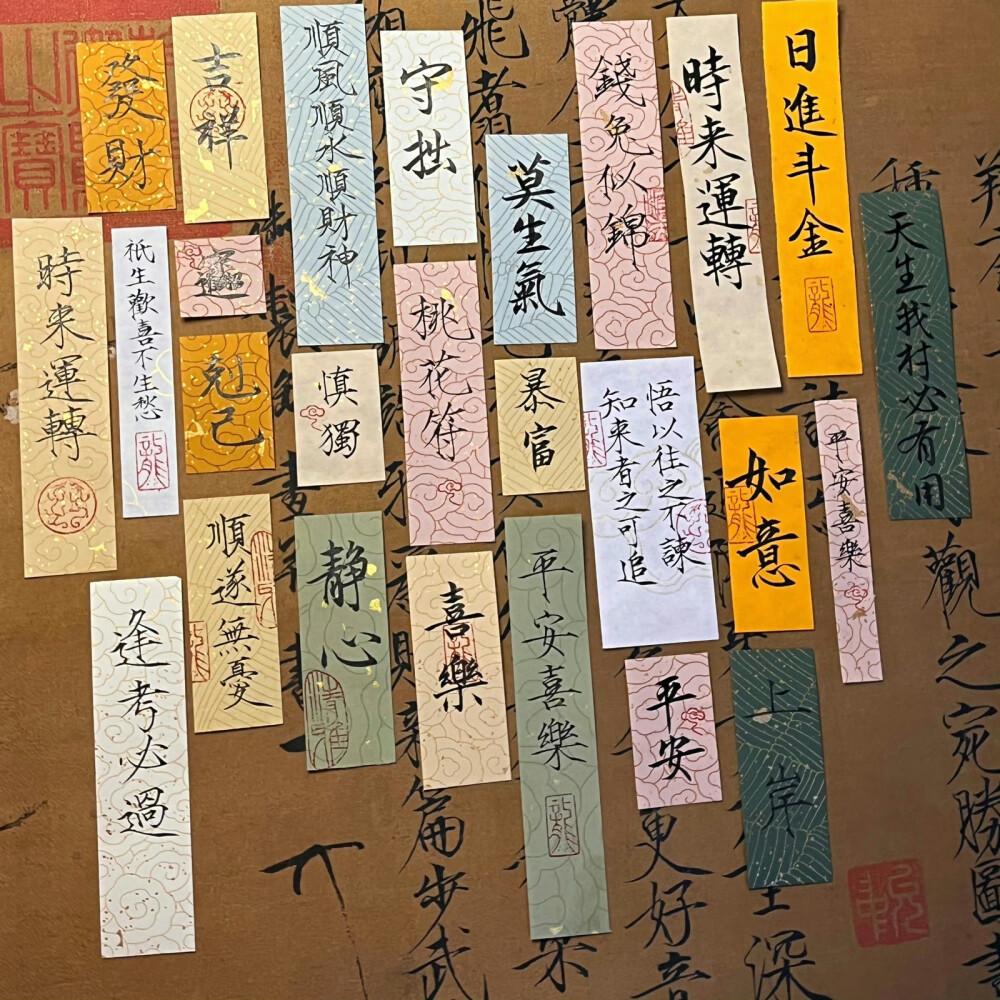 發財
吉祥
順風順水順財神
守拙
莫生氣
錢兔似錦
時来運轉
日進斗金
天生我材必有用
時来運轉
祇生歡喜不生愁
運
尅己
慎獨
桃花符
暴富
悟以往之不諫
知来者之可追
如意
平安喜樂
逢考必過
順遂無憂
静心
喜樂
平安喜樂
平安
上岸
觀之宛勝圖畫
更好音
篇步武